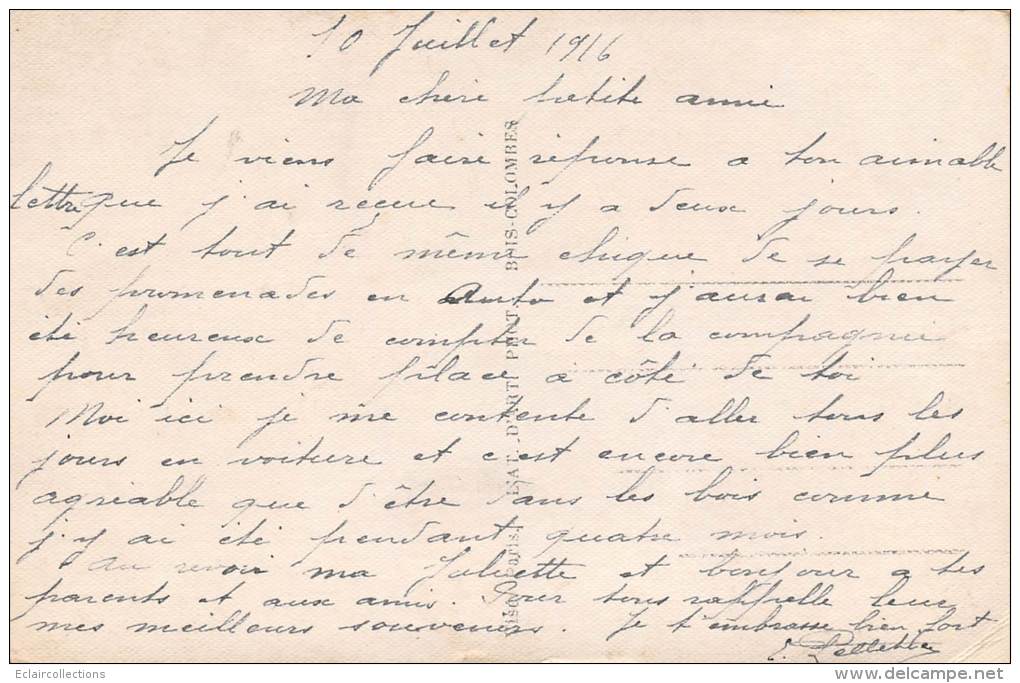 10 Juillet 1916
Ma chère petite amie
Je viens faire réponse a ton aimable
lettre que j'ai reçue il y a deux jours.
C'est tout de même chique de se payer
des promenades en Auto et j'aurai bien
été heureux de compter de la compagnie
pour prendre place a côté de toi
Moi ici je me contente d'aller tous les
jours en voiture et c'est encore bien plus
agréable que d'être dans les bois comme
j'y ai été pendant quatre mois.
Au revoir ma Juliette et bonjour a tes
parents et aux amis. Pour tous rappelle leur
mes meilleurs souvenirs. Je t'embrasse bien fort
D'ART PHOT. BOIS-COLOMBES
Eclaircollections
www.delcampe.net